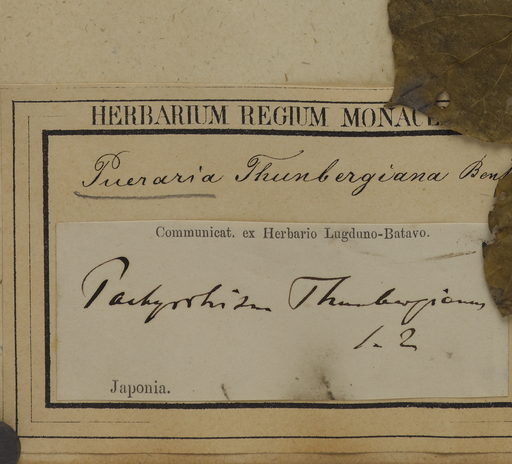 HERBARIUM REGIUM MONACE
Pueraria Thunbergiana Bent
Communicat. ex Herbario Lugduno-Batavo.
Pachyrrhizus Thunbergianus
S. Z.
Japonia.